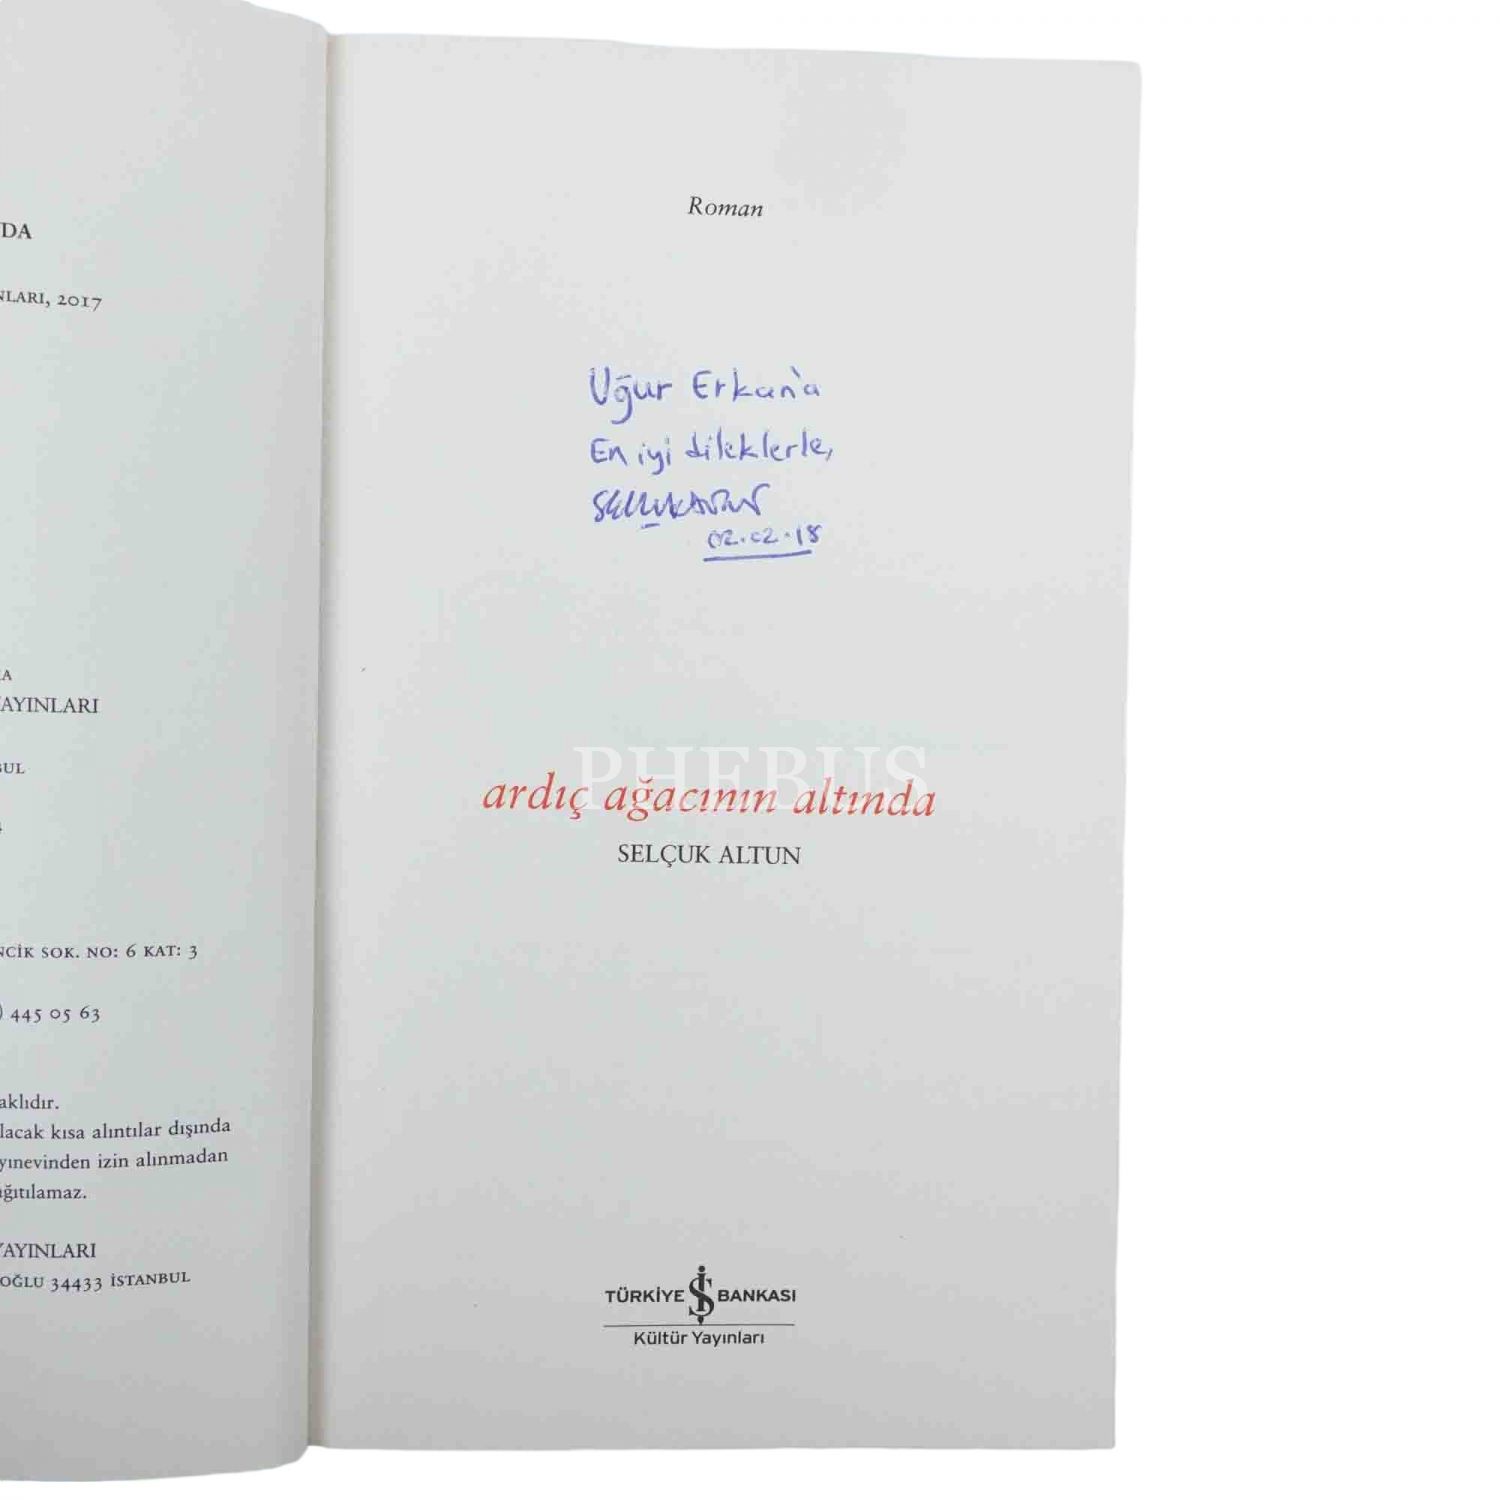 DA
NLARI, 2017
A
AYINLARI
BUL
NCİK SOK. NO: 6 KAT: 3
) 445 05 63
aklıdır.
lacak kısa alıntılar dışında
yınevinden izin alınmadan
ğıtılamaz.
YAYINLARI
OĞLU 34433 İSTANBUL
Roman
Uğur Erkan'a
En iyi dileklerle,
SELÇUK ALTUN
02.02.18
PHEBUS
ardıç ağacının altında
SELÇUK ALTUN
TÜRKİYE İŞ BANKASI
Kültür Yayınları